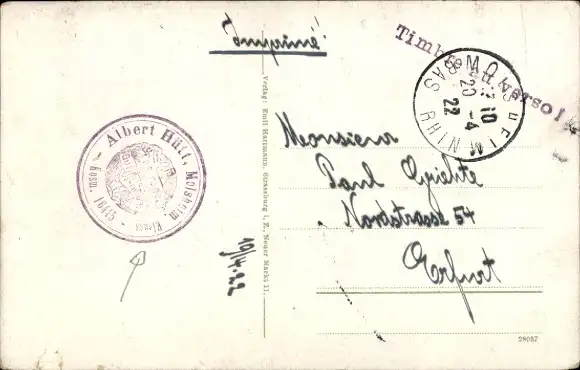 Imprimé
Timbre au verso
MOLSHEIM
BAS RHIN
10
20 -4
22
Albert Hütt, Molsheim.
Kosm. 16715
Monsieur
Paul
Nordstrasse 54
Erfurt
19/4.22
Verlag: Emil Hartmann, Strassburg i. E., Neuer Markt 11.
28037